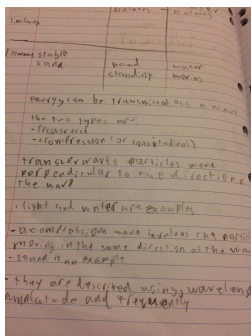 similarity
stable
sand
hand
standing
water
moving
energy can be transmitted as a wave
the two types are:
- transverse
- compression (or longitudinal)
transverse waves particles move
perpendicular to the direction of
the wave
light and water are examples
- a compression wave involves the particles
moving in the same direction as the wave
- sound is an example
- they are described using, wavelength
amplitude and frequency